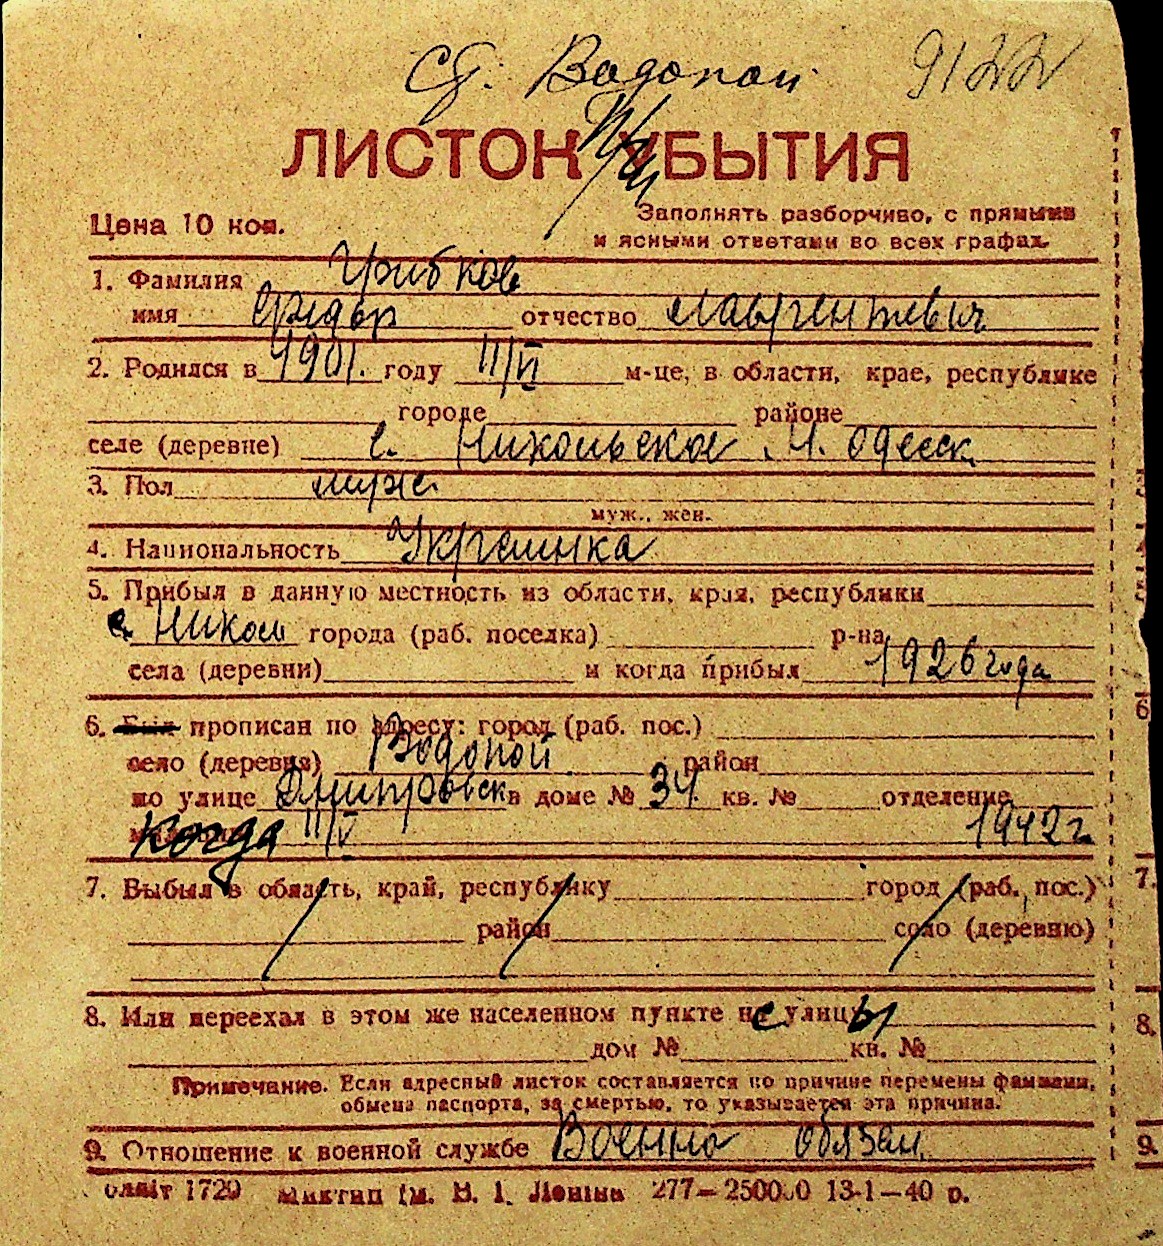 ст. Водопой 9122
ЛИСТОК УБЫТИЯ
Цена 10 коп.
Заполнять разборчиво, с прямыми
и ясными ответами во всех графах.
1. Фамилия Грибков
имя Федор отчество Лаврентьевич
2. Родился в 1901. году 11/VI м-це, в области, крае, республике
городе районе
селе (деревне) с. Никольское Н. Одесск
3. Пол муж.
муж., жен.
4. Национальность Украинка
5. Прибыл в данную местность из области, края, республики
с. Никол города (раб. поселка) р-на
села (деревни) и когда прибыл 1926 года
6. Был прописан по адресу: город (раб. пос.)
село (деревня) Водопой район
по улице Дмитровск в доме № 34 кв. № отделение
когда 11/V 1942 г
7. Выбыл в область, край, республику город (раб. пос.)
район село (деревню)
8. Или переехал в этом же населенном пункте с улицы
дом № кв. №
Примечание. Если адресный листок составляется по причине перемены фамилии,
обмена паспорта, за смертью, то указывается эта причина.
9. Отношение к военной службе Военно обязан.
1720 им. В. И. Леніна 277—250000 13-1—40 р.
6
7.
8.
9.